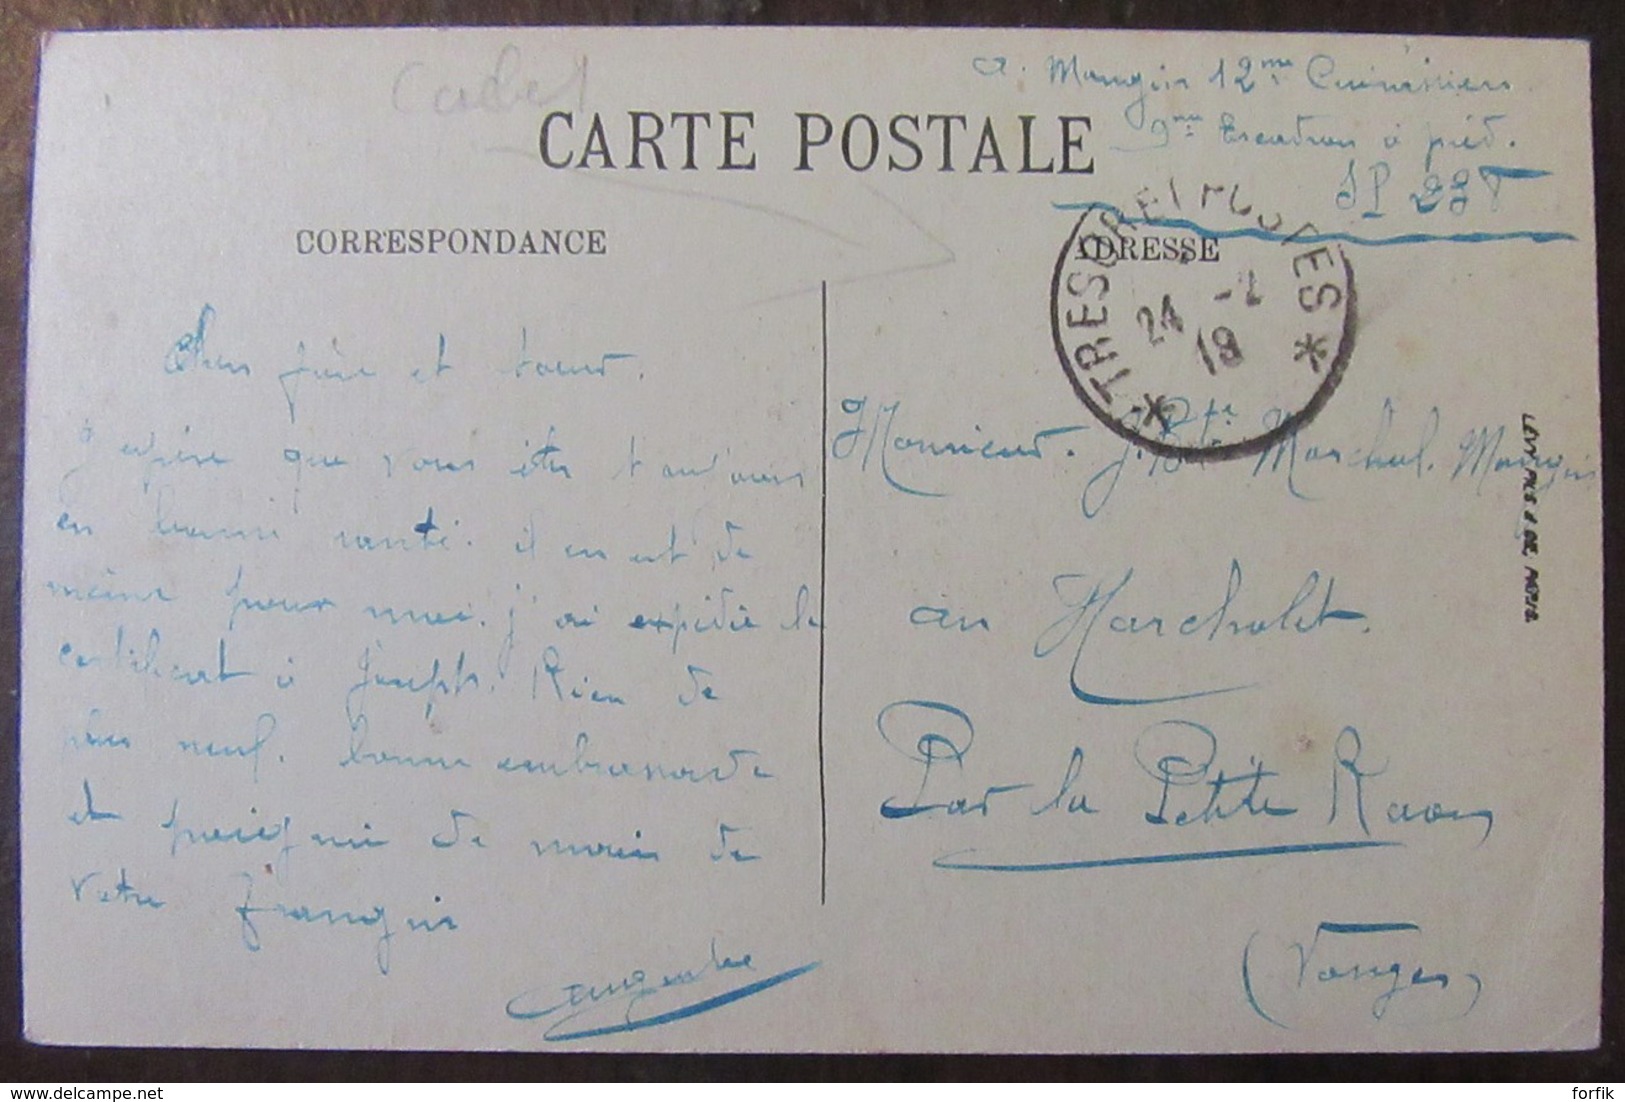 Cadet
a. Mangin 12me Cuirassiers
9me Escadron à pied.
SP 238
CARTE POSTALE
CORRESPONDANCE
ADRESSE
* TRESOR ET POSTES *
24 -2
18
Cher frère et soeur.
J'espère que vous êtes toujours
en bonne santé. il en est de
même pour moi. j'ai expédié le
certificat à Joseph. Rien de
plus neuf. bonne embrassade
et poignée de main de
votre frangin
Monsieur. J. Bte Marchal. Mangin
au Harcholet.
Par la Petite Raon
(Vosges)
LEVY FILS & CIE. PARIS.
forfik